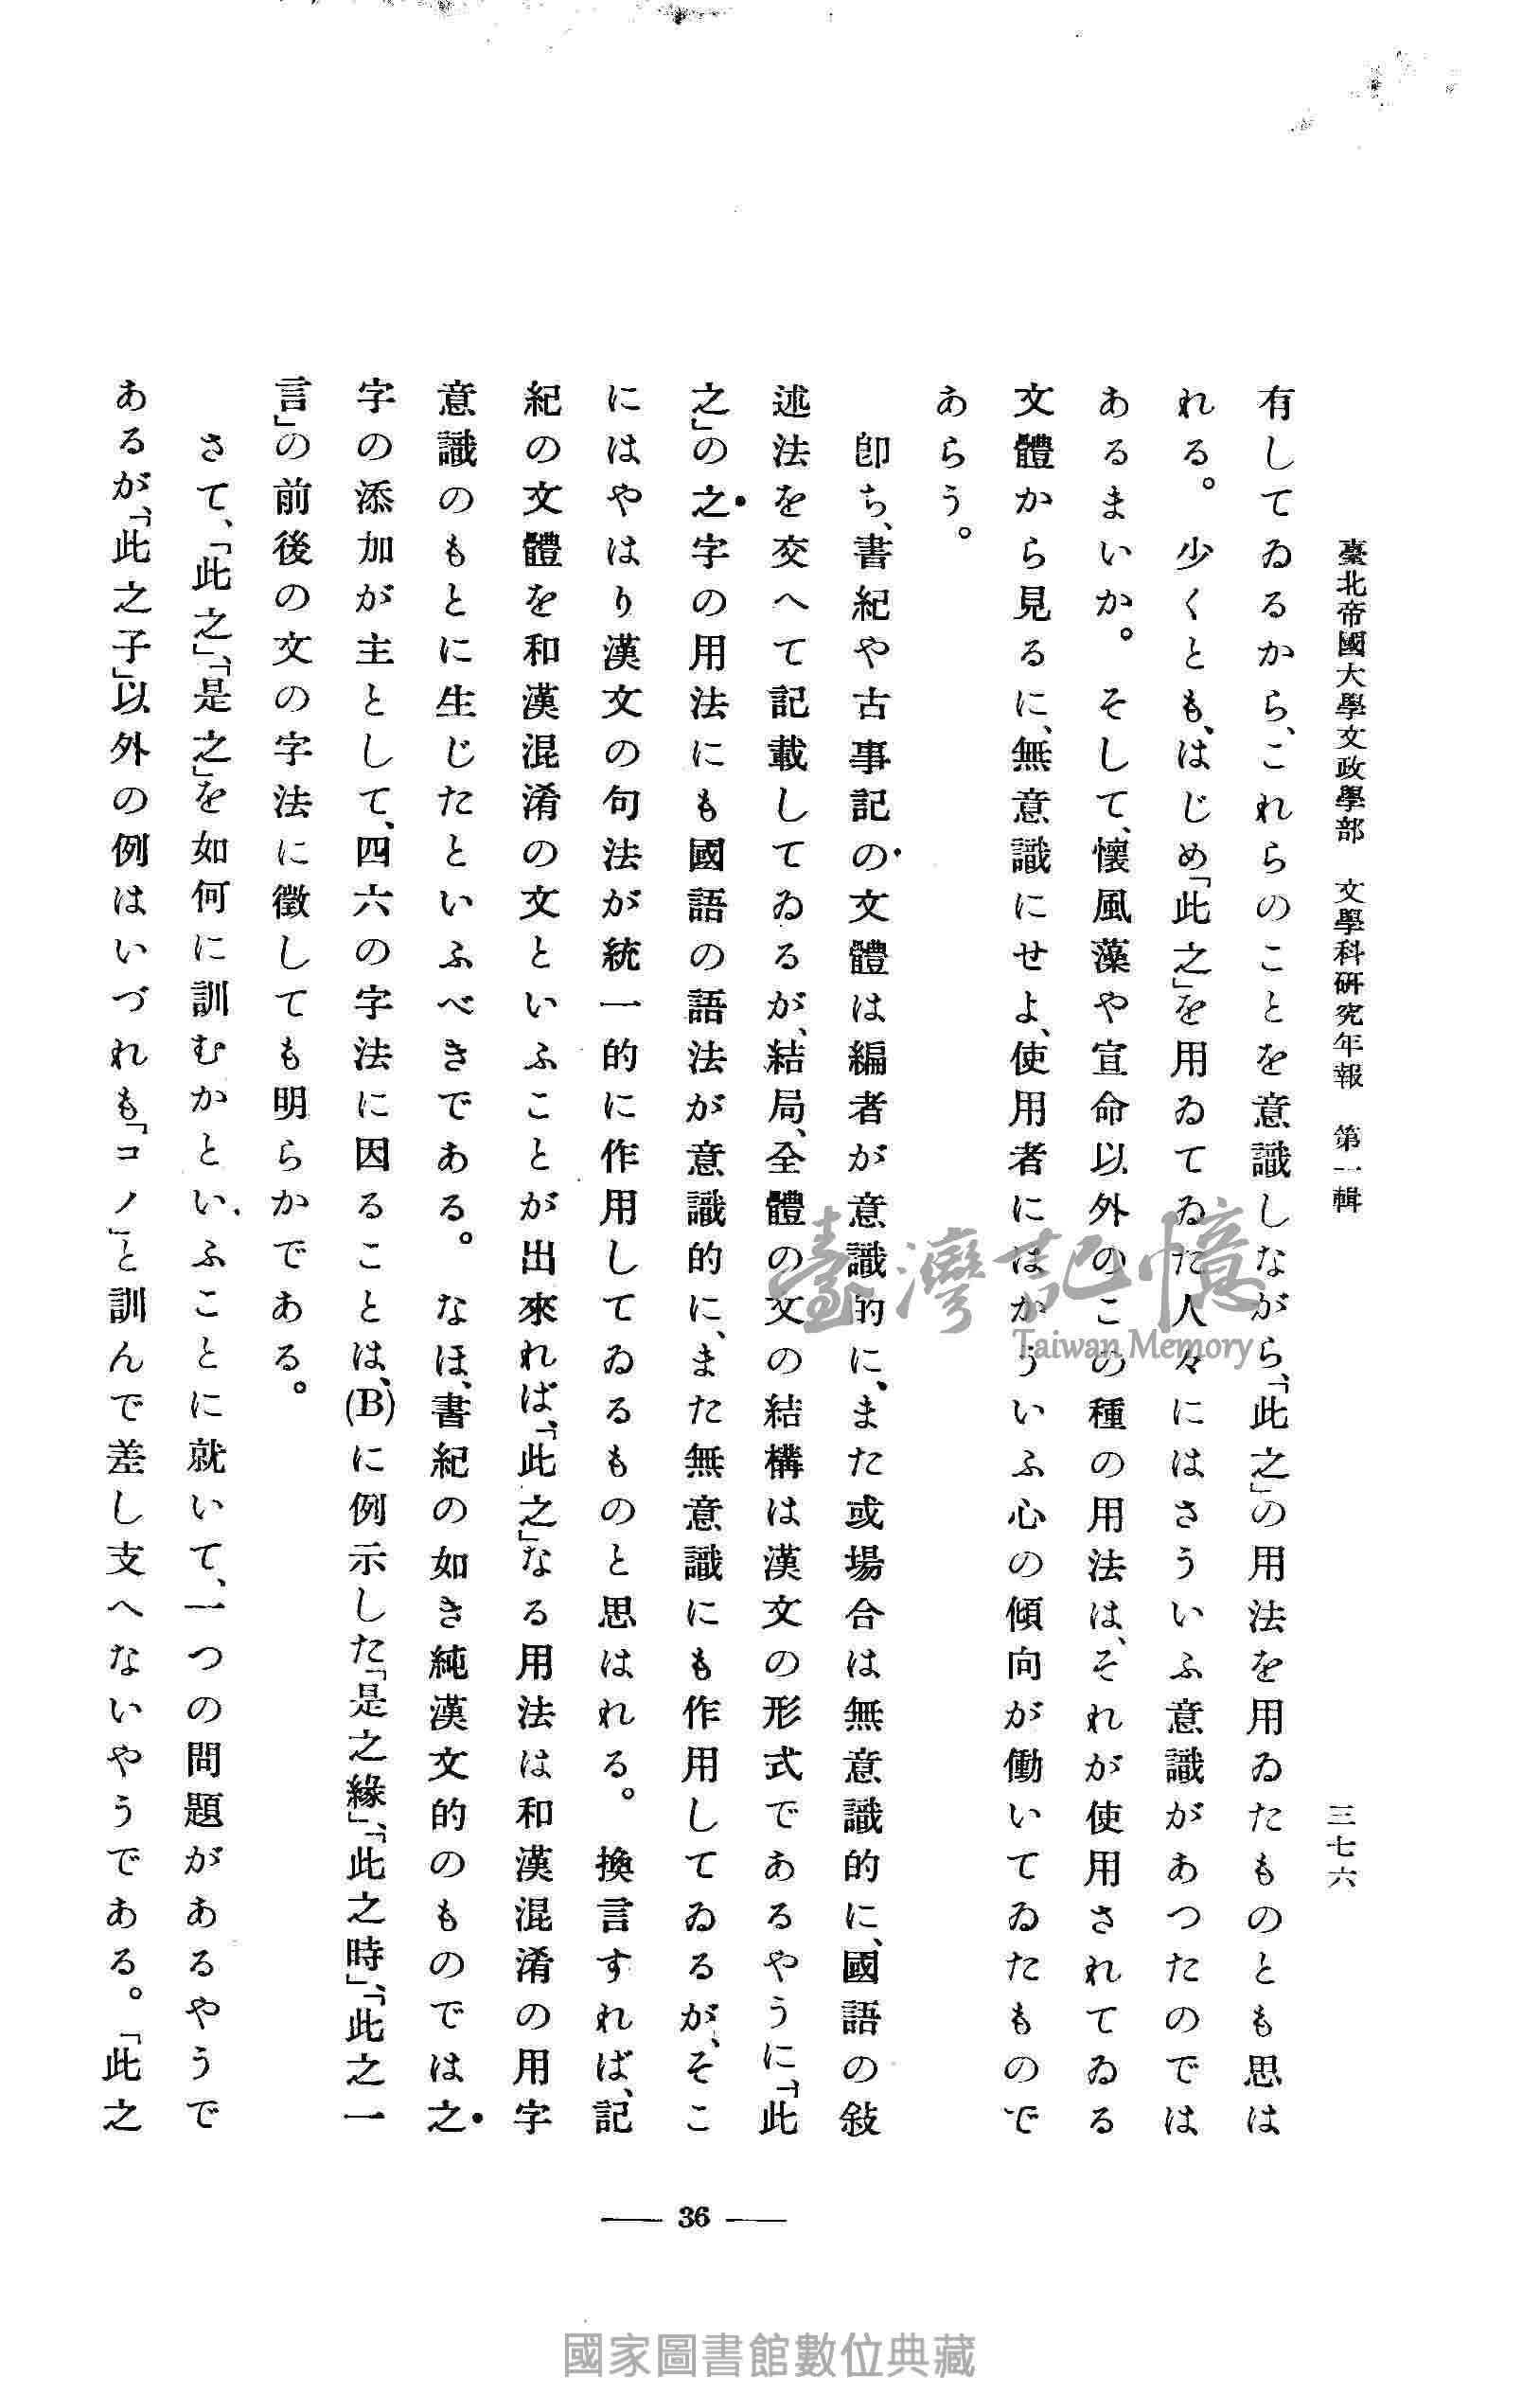 臺北帝國大學文政學部　文學科硏究年報　第一輯　三七六
有してゐるから、これらのことを意識しながら、「此之」の用法を用ゐたものとも思は
れる。少くとも、はじめ「此之」を用ゐてゐた人々にはさういふ意識があつたのでは
あるまいか。そして、懷風藻や宣命以外のこの種の用法は、それが使用されてゐる
文體から見るに、無意識にせよ、使用者にはかういふ心の傾向が働いてゐたもので
あらう。
卽ち、書紀や古事記の文體は編者が意識的に、また或場合は無意識的に、國語の敍
述法を交へて記載してゐるが、結局、全體の文の結構は漢文の形式であるやうに、「此
之」の之字の用法にも國語の語法が意識的に、また無意識にも作用してゐるが、そこ
にはやはり漢文の句法が統一的に作用してゐるものと思はれる。換言すれば、記
紀の文體を和漢混淆の文といふことが出來れば、「此之」なる用法は和漢混淆の用字
意識のもとに生じたといふべきである。なほ、書紀の如き純漢文的のものでは之
字の添加が主として、四六の字法に因ることは、(B)に例示した「是之緣」、「此之時」、「此之一
言」の前後の文の字法に徵しても明らかである。
さて、「此之」、「是之」を如何に訓むかといふことに就いて、一つの問題があるやうで
あるが、「此之子」以外の例はいづれも「コノ」と訓んで差し支へないやうである。「此之
— 36 —
臺灣記憶
Taiwan Memory
國家圖書館數位典藏